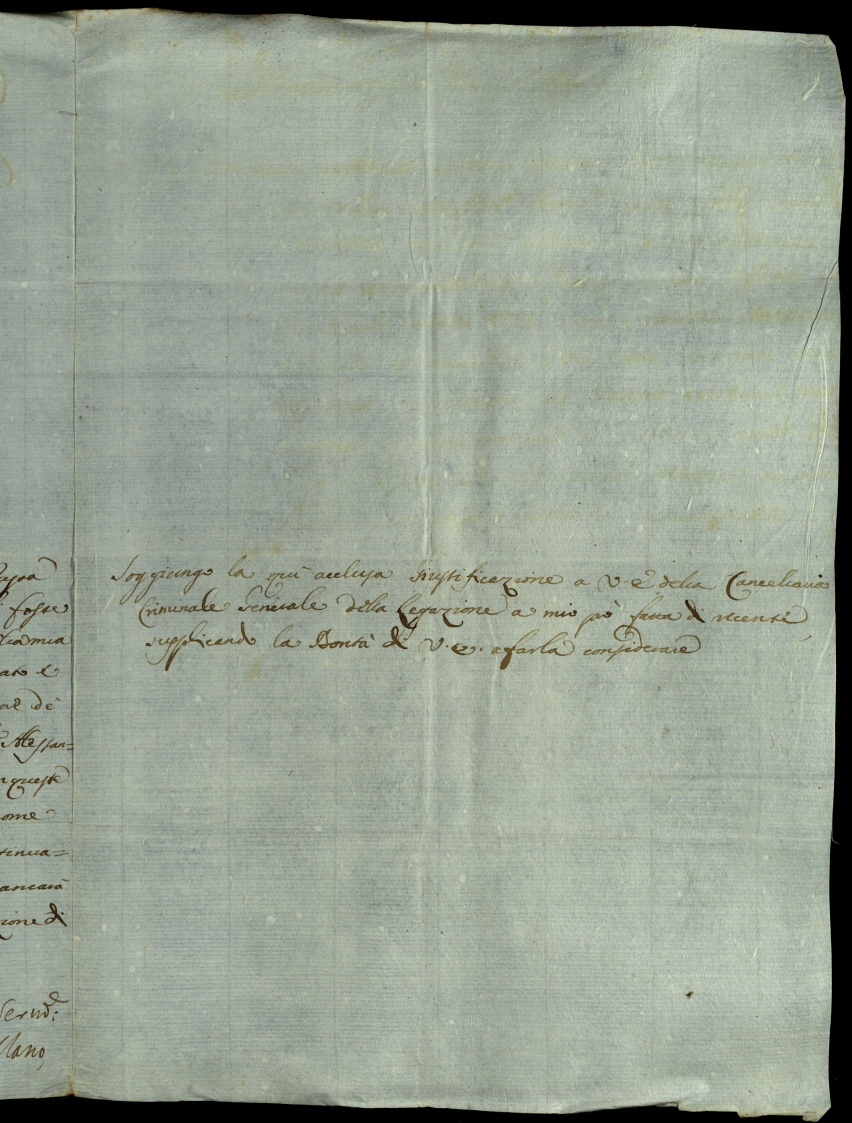 Soggiungo la quì acclusa Giustificazione a V. E. della Cancellaria
Criminale Generale della Legazione a mio prò fatta di recente,
supplicando la Bontà di V. E. a farla considerare
foste
mia
ato e
al de
Alessan=
queste
ome
tinua=
ancarà
zione di
Servid.e: